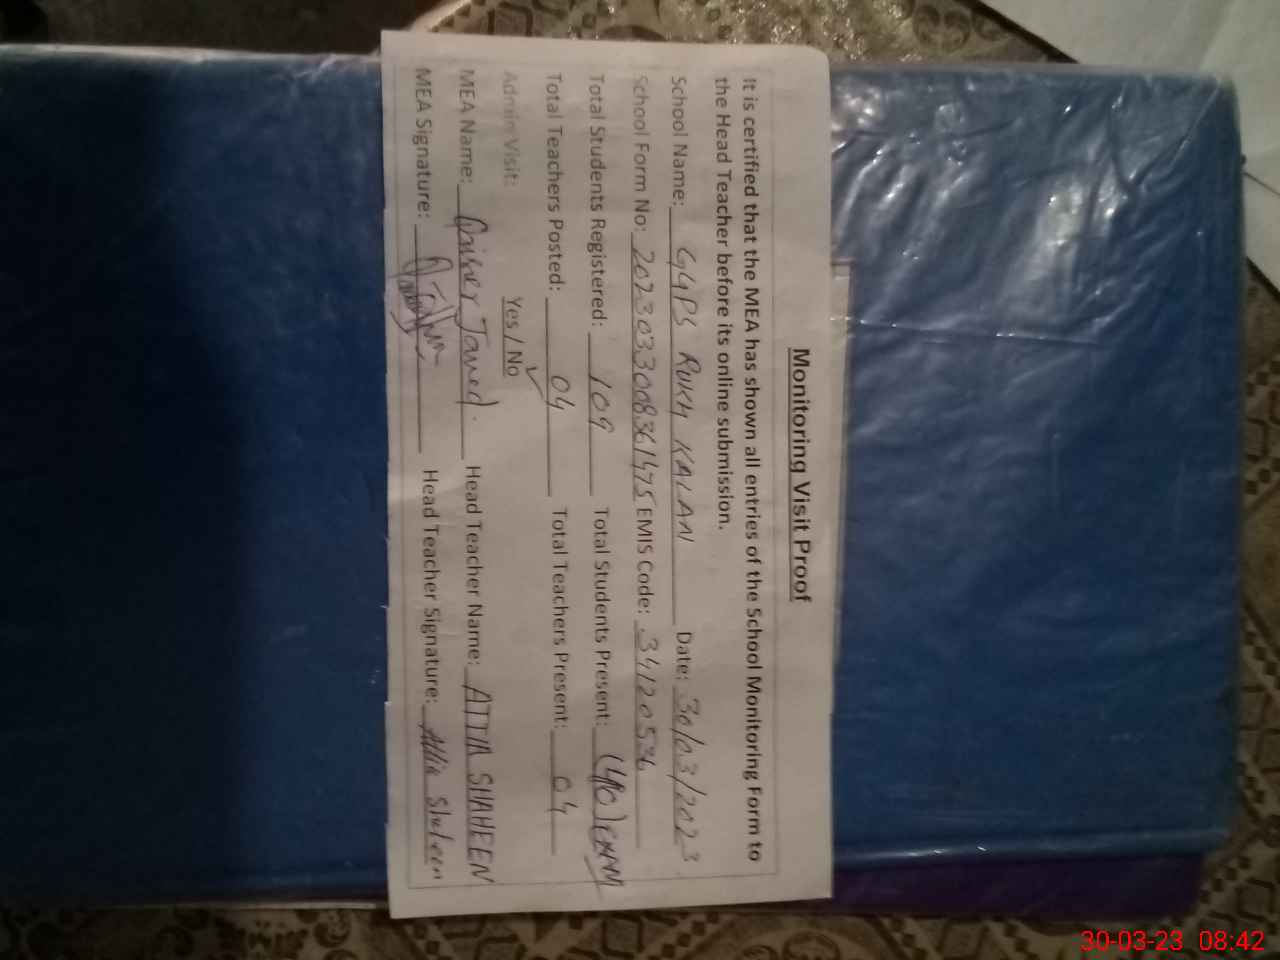 Monitoring Visit Proof
It is certified that the MEA has shown all entries of the School Monitoring Form to
the Head Teacher before its online submission.
School Name: GGPS RUKH KALAN Date: 30/03/2023
School Form No: 2023033008361475 EMIS Code: 34120536
Total Students Registered: 109 Total Students Present: (40)
Total Teachers Posted: 04 Total Teachers Present: 04
Admin Visit: Yes / No
MEA Name: Javed. Head Teacher Name: ATTIA SHAHEEN
MEA Signature: Head Teacher Signature: Attia Shaheen
30-03-23 08:42